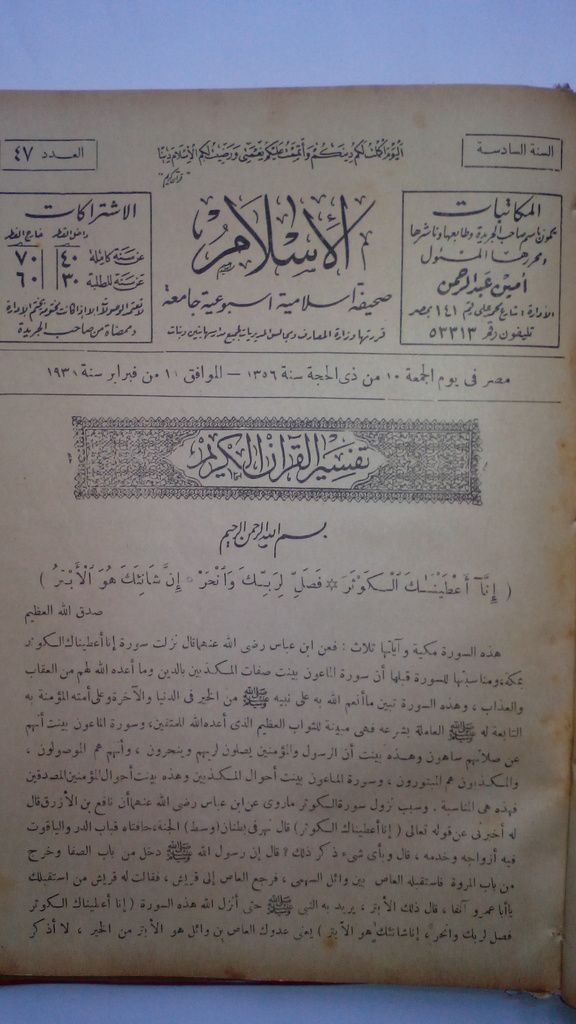 السنة السادسة
اليوم أكملت لكم دينكم وأتممت عليكم نعمتي ورضيت لكم الإسلام دينا
قرآن كريم
العدد ٤٧
المكاتبات
تكون باسم صاحب الجريدة وطابعها وناشرها
ومحررها المسئول
أمين عبد الرحمن
الادارة: شارع محمد علي رقم ١٤١ بمصر
تليفون رقم ٥٣٣١٣
الإسلام
صحيفة اسلامية اسبوعية جامعة
قررتها وزارة المعارف ومجالس المديريات لجميع مدارسها بنين وبنات
الاشتراكات
داخل القطر خارج القطر
عن سنة كاملة ٤٠ ٧٠
عن سنة للطلبة ٣٠ ٦٠
لا تعتمد الوصولات الا اذا كانت مختومة بختم الادارة
وممضاة من صاحب الجريدة
مصر فى يوم الجمعة ١٠ من ذى الحجة سنة ١٣٥٦ — الموافق ١١ من فبراير سنة ١٩٣٨
تفسير القرآن الكريم
بسم الله الرحمن الرحيم
( إِنَّا أَعْطَيْنَـٰكَ الْـكَوْثَرَ * فَصَلِّ لِرَبِّـكَ وَانْحَرْ * إِنَّ شَانِئَكَ هُوَ الْأَبْتَرُ )
صدق الله العظيم
هذه السورة مكية وآياتها ثلاث : فعن ابن عباس رضى الله عنهما قال نزلت سورة إنا أعطيناك الكوثر
بمكة، ومناسبتها للسورة قبلها أن سورة الماعون بينت صفات المكذبين بالدين وما أعده الله لهم من العقاب
والعذاب ، وهذه السورة تبين ما أنعم الله به على نبيه ﷺ من الخير فى الدنيا والآخرة وعلى أمته المؤمنة به
التابعة له ﷺ العاملة بشرعه فهى مبينة للثواب العظيم الذى أعده الله للمتقين، وسورة الماعون بينت أنهم
عن صلاتهم ساهون وهذه بينت أن الرسول والمؤمنين يصلون لربهم وينحرون ، وأنهم هم الموصولون ،
والمكذبون هم المبتورون ، وسورة الماعون بينت أحوال المكذبين وهذه بينت أحوال المؤمنين المصدقين
فهذه هى المناسبة . وسبب نزول سورة الكوثر ماروى عن ابن عباس رضى الله عنهما أن نافع بن الأزرق قال
له أخبرنى عن قوله تعالى ( إنا أعطيناك الكوثر ) قال نهر فى بطنان (وسط) الجنة، حافتاه قباب الدر والياقوت
فيه أزواجه وخدمه ، قال وبأى شىء ذكر ذلك ؟ قال إن رسول الله ﷺ دخل من باب الصفا وخرج
من باب المروة فاستقبله العاص بن وائل السهمى ، فرجع العاص إلى قريش ، فقالت له قريش من استقبلك
يا أبا عمرو آنفا ، قال ذلك الأبتر ، يريد به النبى ﷺ حتى أنزل الله هذه السورة ( إنا أعطيناك الكوثر
فصل لربك وانحر ، إن شانئك هو الأبتر ) يعنى عدوك العاص بن وائل هو الأبتر من الخير ، لا أذكر